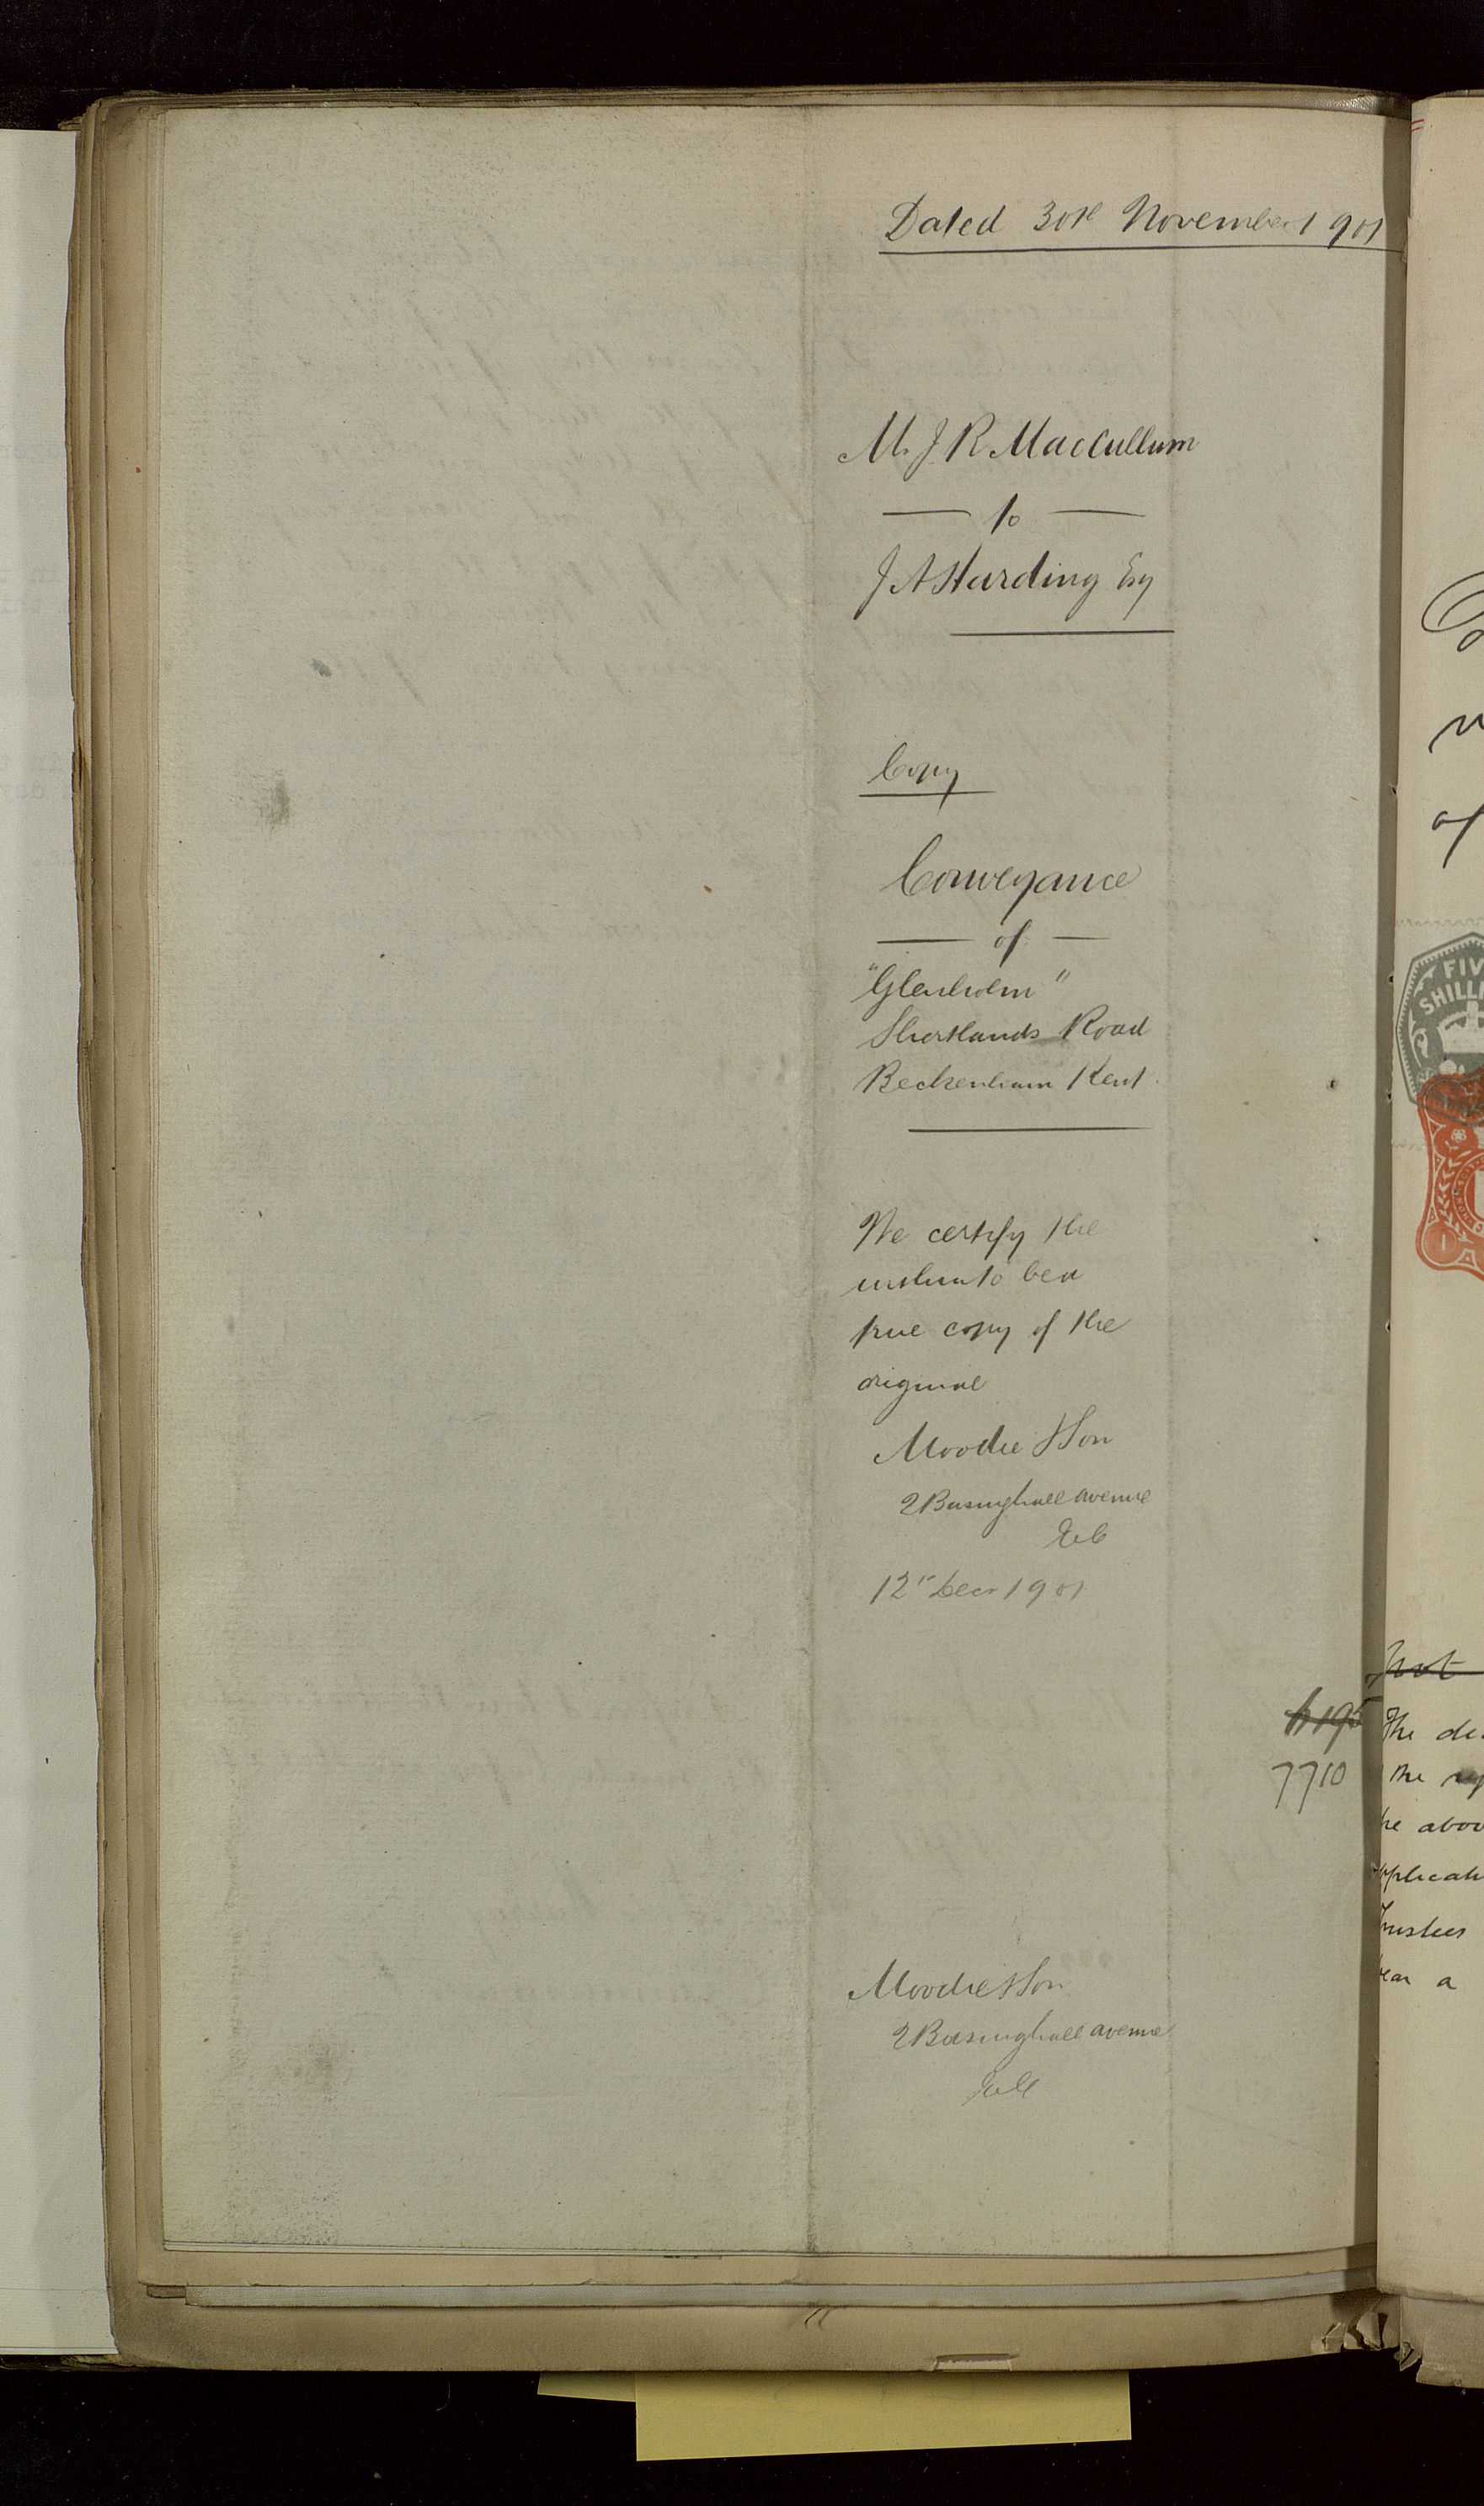 Dated 30th November 1901
Mr J R MacCullum
to
J A Harding Esq
Copy
Conveyance
of
"Glenholm"
Shortlands Road
Beckenham Kent.
We certify the
within to be a
true copy of the
original
Moodie & Son
2 Basinghall avenue
EC
12th Decr 1901
7710
Moodie & Son
2 Basinghall avenue
EC
of
FIV
SHILLI
not
The de
the
he abov
pplicati
Trustees
ear a